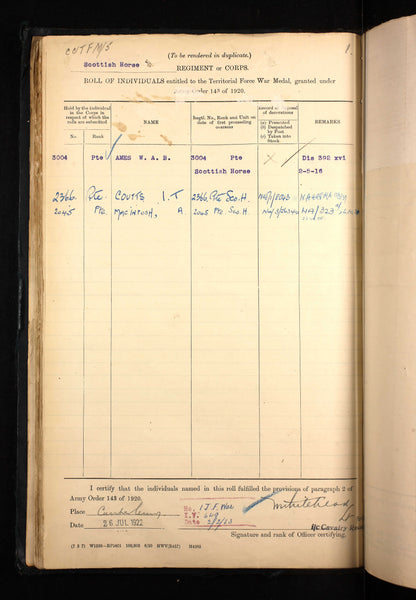 1.
(To be rendered in duplicate.)
Scottish Horse REGIMENT or CORPS.
ROLL OF INDIVIDUALS entitled to the Territorial Force War Medal, granted under
Army Order 143 of 1920.
Held by the individual in the Corps in respect of which the rolls are submitted
No. Rank
NAME
Regtl. No., Rank and Unit on date of first proceeding overseas
Record of disposal of decorations
(a) Presented
(b) Despatched by Post
(c) Taken into Stock
REMARKS
3004 Pte AMES W. A. B. 3004 Pte Scottish Horse X Dis 392 xvi 2-5-16
2366. Pte. COUTTS I. T 2366 Pte Sco. H.
2045 Pte. MACINTOSH, A 2045 Pte Sco. H.
I certify that the individuals named in this roll fulfilled the provisions of paragraph 2 of
Army Order 143 of 1920.
Place Canterbury
Date 26 JUL 1922
No.
Date
Whitehead
I/c Cavalry
Signature and rank of Officer certifying.